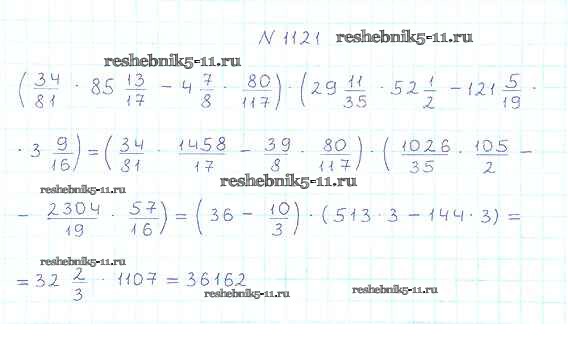 N 1121 reshebnik5-11.ru
reshebnik5-11.ru
(34/81 · 85 13/17 − 4 7/8 · 80/117) · (29 11/35 · 52 1/2 − 121 5/19 ·
· 3 9/16) = (34/81 · 1458/17 − 39/8 · 80/117) · (1026/35 · 105/2 −
reshebnik5-11.ru reshebnik5-11.ru
− 2304/19 · 57/16) = (36 − 10/3) · (513 · 3 − 144 · 3) =
reshebnik5-11.ru
= 32 2/3 · 1107 = 36162
reshebnik5-11.ru reshebnik5-11.ru